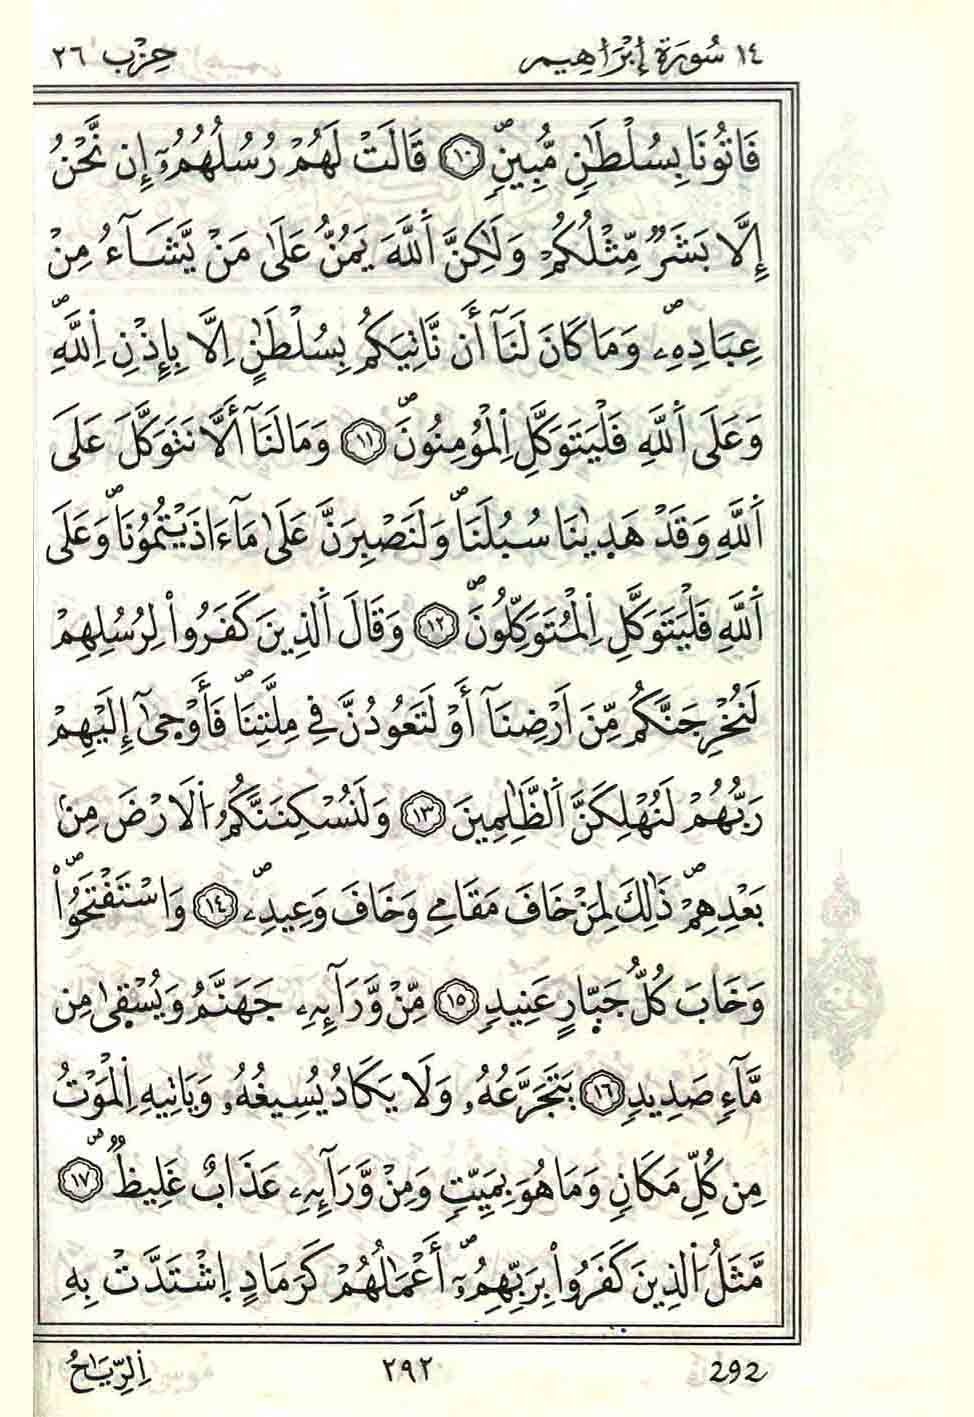 ١٤ سُورَةُ إِبْرَاهِيم حِزْب ٢٦
فَاتُونَا بِسُلْطَٰنٖ مُّبِينٖۖ ١٠ قَالَتْ لَهُمْ رُسُلُهُمُۥٓ إِن نَّحْنُ
إِلَّا بَشَرٞ مِّثْلُكُمْ وَلَٰكِنَّ اَ۬للَّهَ يَمُنُّ عَلَىٰ مَنْ يَّشَآءُ مِنْ
عِبَادِهِۦۖ وَمَا كَانَ لَنَآ أَن نَّاتِيَكُم بِسُلْطَٰنٍ اِلَّا بِإِذْنِ اِ۬للَّهِۖ
وَعَلَى اَ۬للَّهِ فَلْيَتَوَكَّلِ اِ۬لْمُومِنُونَۖ ١١ وَمَا لَنَآ أَلَّا نَتَوَكَّلَ عَلَى
اَ۬للَّهِ وَقَدْ هَدِىٰنَا سُبُلَنَاۖ وَلَنَصْبِرَنَّ عَلَىٰ مَآ ءَاذَيْتُمُونَاۖ وَعَلَى
اَ۬للَّهِ فَلْيَتَوَكَّلِ اِ۬لْمُتَوَكِّلُونَۖ ١٢ وَقَالَ اَ۬لذِينَ كَفَرُواْ لِرُسُلِهِمْ
لَنُخْرِجَنَّكُم مِّنَ اَرْضِنَآ أَوْ لَتَعُودُنَّ فِي مِلَّتِنَاۖ فَأَوْحَىٰٓ إِلَيْهِمْ
رَبُّهُمْ لَنُهْلِكَنَّ اَ۬لظَّٰلِمِينَ ١٣ وَلَنُسْكِنَنَّكُمُ اُ۬لَارْضَ مِنۢ
بَعْدِهِمْۖ ذَٰلِكَ لِمَنْ خَافَ مَقَامِي وَخَافَ وَعِيدِۦۖ ١٤ وَاسْتَفْتَحُواْۖ
وَخَابَ كُلُّ جَبّ۪ارٍ عَنِيدٖ ١٥ مِّنْ وَّرَآئِهِۦ جَهَنَّمُ وَيُسْقَىٰ مِن
مَّآءٖ صَدِيدٖ ١٦ يَتَجَرَّعُهُۥ وَلَا يَكَادُ يُسِيغُهُۥ وَيَاتِيهِ اِ۬لْمَوْتُ
مِن كُلِّ مَكَانٖ وَمَا هُوَ بِمَيِّتٖ وَمِنْ وَّرَآئِهِۦ عَذَابٌ غَلِيظٞۖ ١٧
مَّثَلُ اُ۬لذِينَ كَفَرُواْ بِرَبِّهِمُۥٓۖ أَعْمَٰلُهُمْ كَرَمَادٍ اِ۪شْتَدَّتْ بِهِ
اِ۬لرِّيَٰحُ ٢٩٢ 292